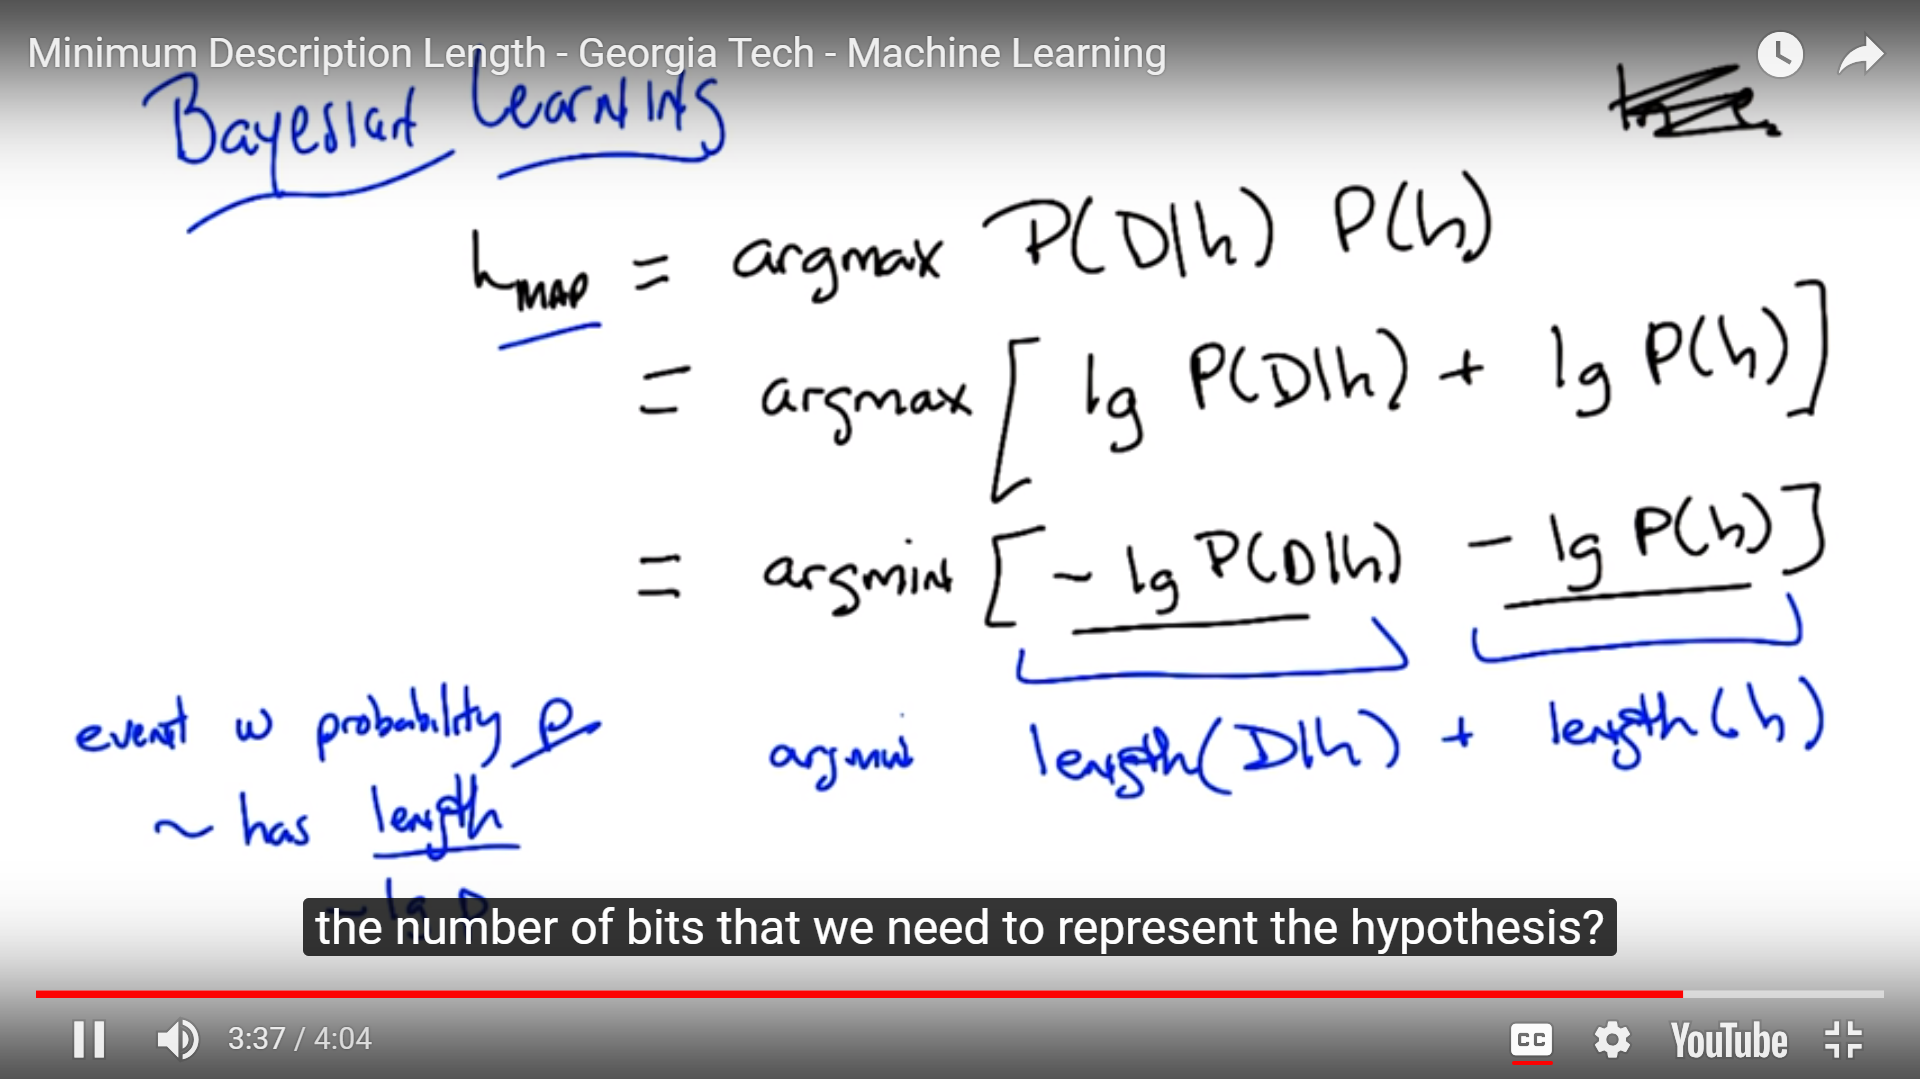 Minimum Description Length - Georgia Tech - Machine Learning
Bayesian Learning
h_MAP = argmax P(D|h) P(h)
= argmax [ lg P(D|h) + lg P(h) ]
= argmin [ - lg P(D|h) - lg P(h) ]
event w probability p
argmin length(D|h) + length(h)
~ has length
- lg p
the number of bits that we need to represent the hypothesis?
3:37 / 4:04
CC
YouTube